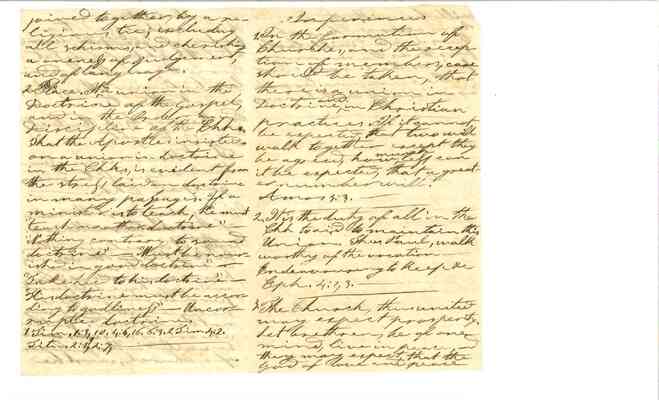 joined together, by a re-
ligious, tie, excluding
all schisms, and cherishing
a oneness of judgement,
and of language.
2. Place. The union in the
Doctrine of the Gospel,
and in the
Discipline of the Chhs.
That the Apostles insisted
on a union in doctrine
in the Chhs, is evident from
the stress, laid on doctrine
in many passages. If a
minister is to teach, he must
teach no other doctrine" —
Nothing contrary to sound
doctrine" — Must be nour-
ished in good doctrine" —
Take heed to his doctrine" —
His doctrine must be accor-
ding to godliness" — Uncor-
rupt doctrine
1 Tim. 1:3, 10. 4:6, 16. 6:3. 2 Tim. 4:2.
Titus. 2:1, 2:7.
Inferences
1. In the formation of
Churches, and the recep-
tion of members, care
should be taken, that
there is a union in
Doctrine, and in Christian
practices. If it cannot
be expected, that two will
walk together except they
be agreed, how much less can
it be expected, that a great-
er number will.
Amos 3:3.
2. It is the duty of all in the
Chh to aid to maintain this
Union. Thus Paul, walk
worthy of the vocation
Endeavouring to keep &c
Eph. 4:1,3.
3. The Church, thus united
may expect prosperity.
Let brethren, be of one
mind, live in peace, and
they may expect, that the
God of love and peace